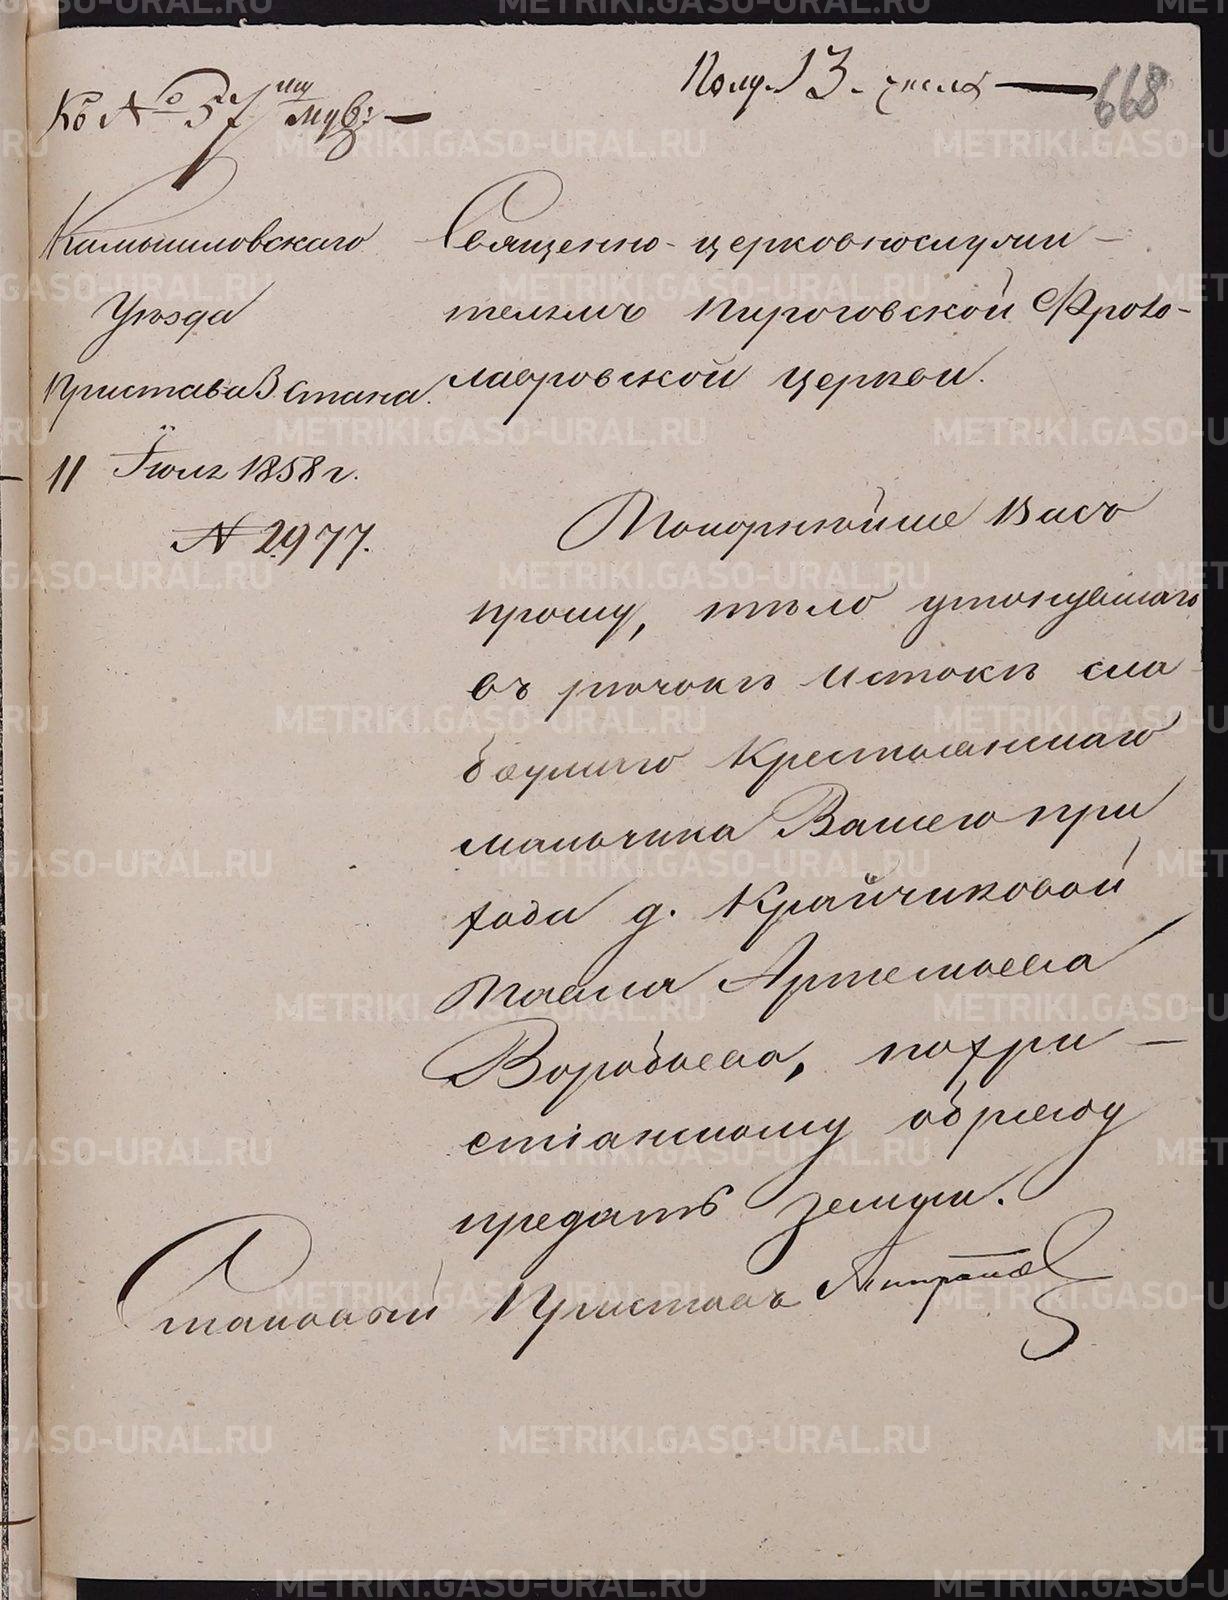 Къ № 57 муж:
Полу. 13. числа
668
Камышловскаго
Уѣзда
Пристава 3 Стана.
11 Іюля 1858 г.
№ 2977.
Священно-церковнослужи-
телямъ Пироговской Фроло-
лавровской церкви.
Покорнѣйше Васъ
прошу, тѣло утонувшаго
въ рѣчкѣ Истокъ сла
боумнаго Крестьянскаго
мальчика Вашего при
хода д. Крайчиковой
Павла Артемьева
Воробьева, по хри-
стіанскому обряду
предать землѣ.
Становый Приставъ
METRIKI.GASO-URAL.RU